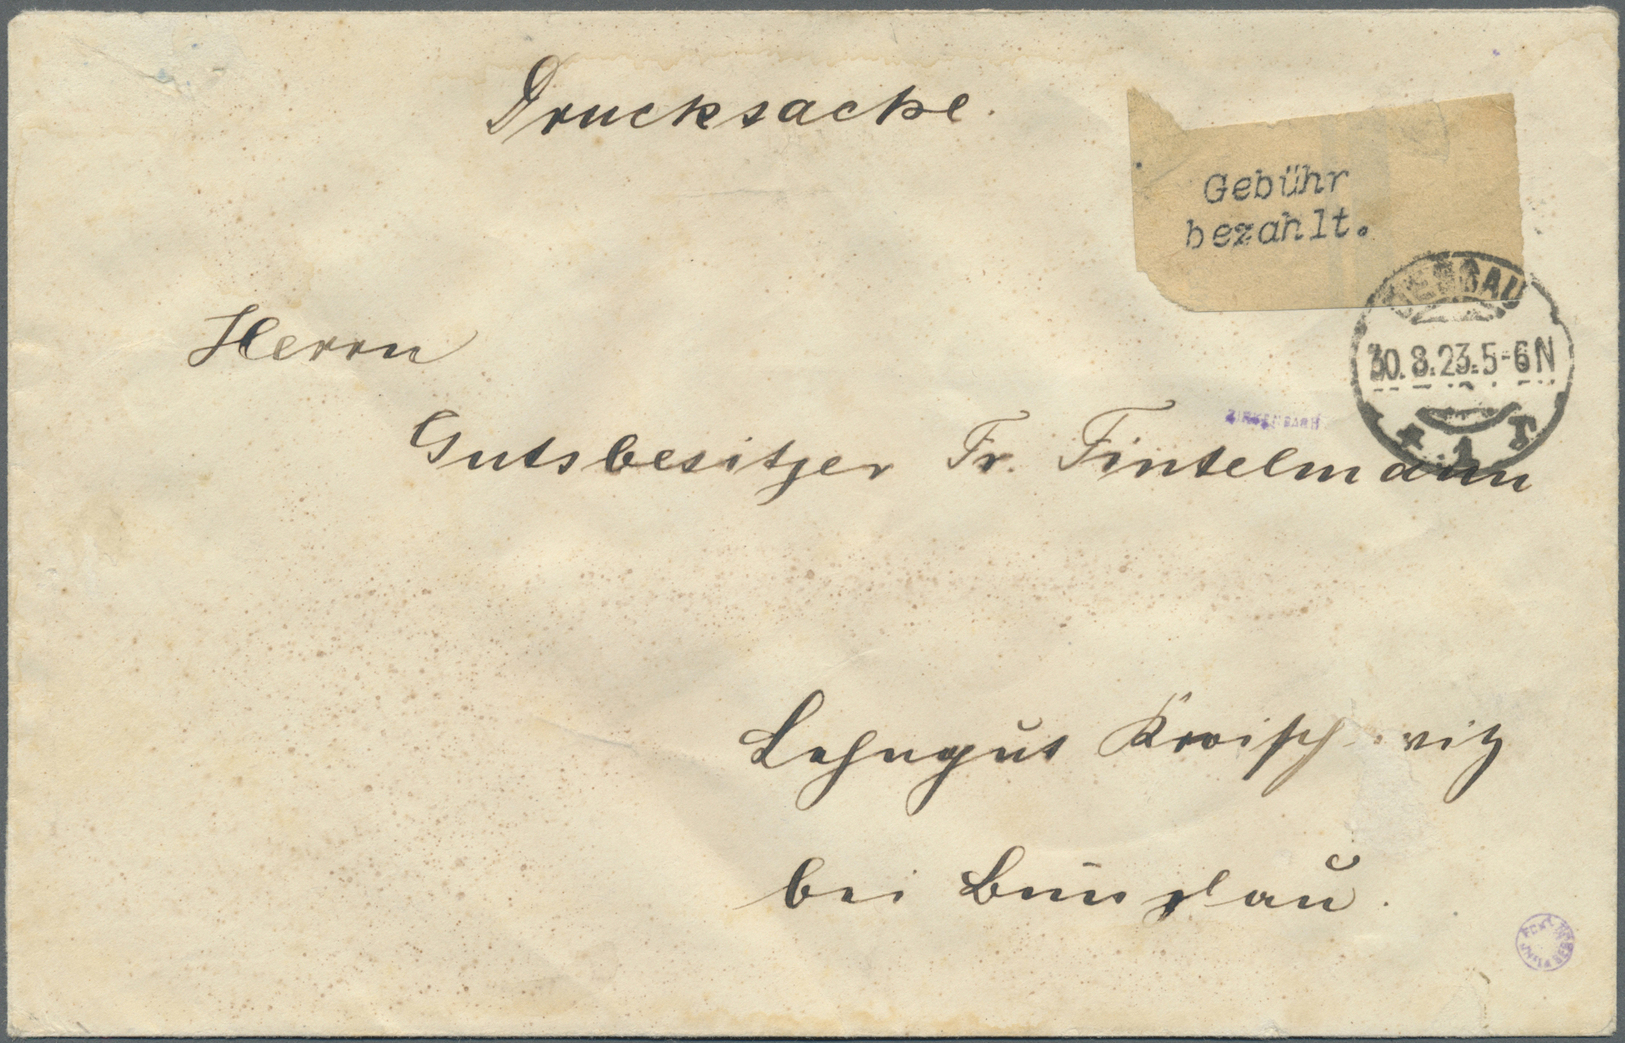 Drucksache.
Gebühr
bezahlt.
DESSAU
30.8.23.5-6N
* 1 r
Herrn
ZIRKENBACH
Gutsbesitzer Fr. Fintelmann
Lehngut Kroischwitz
bei Bunzlau.